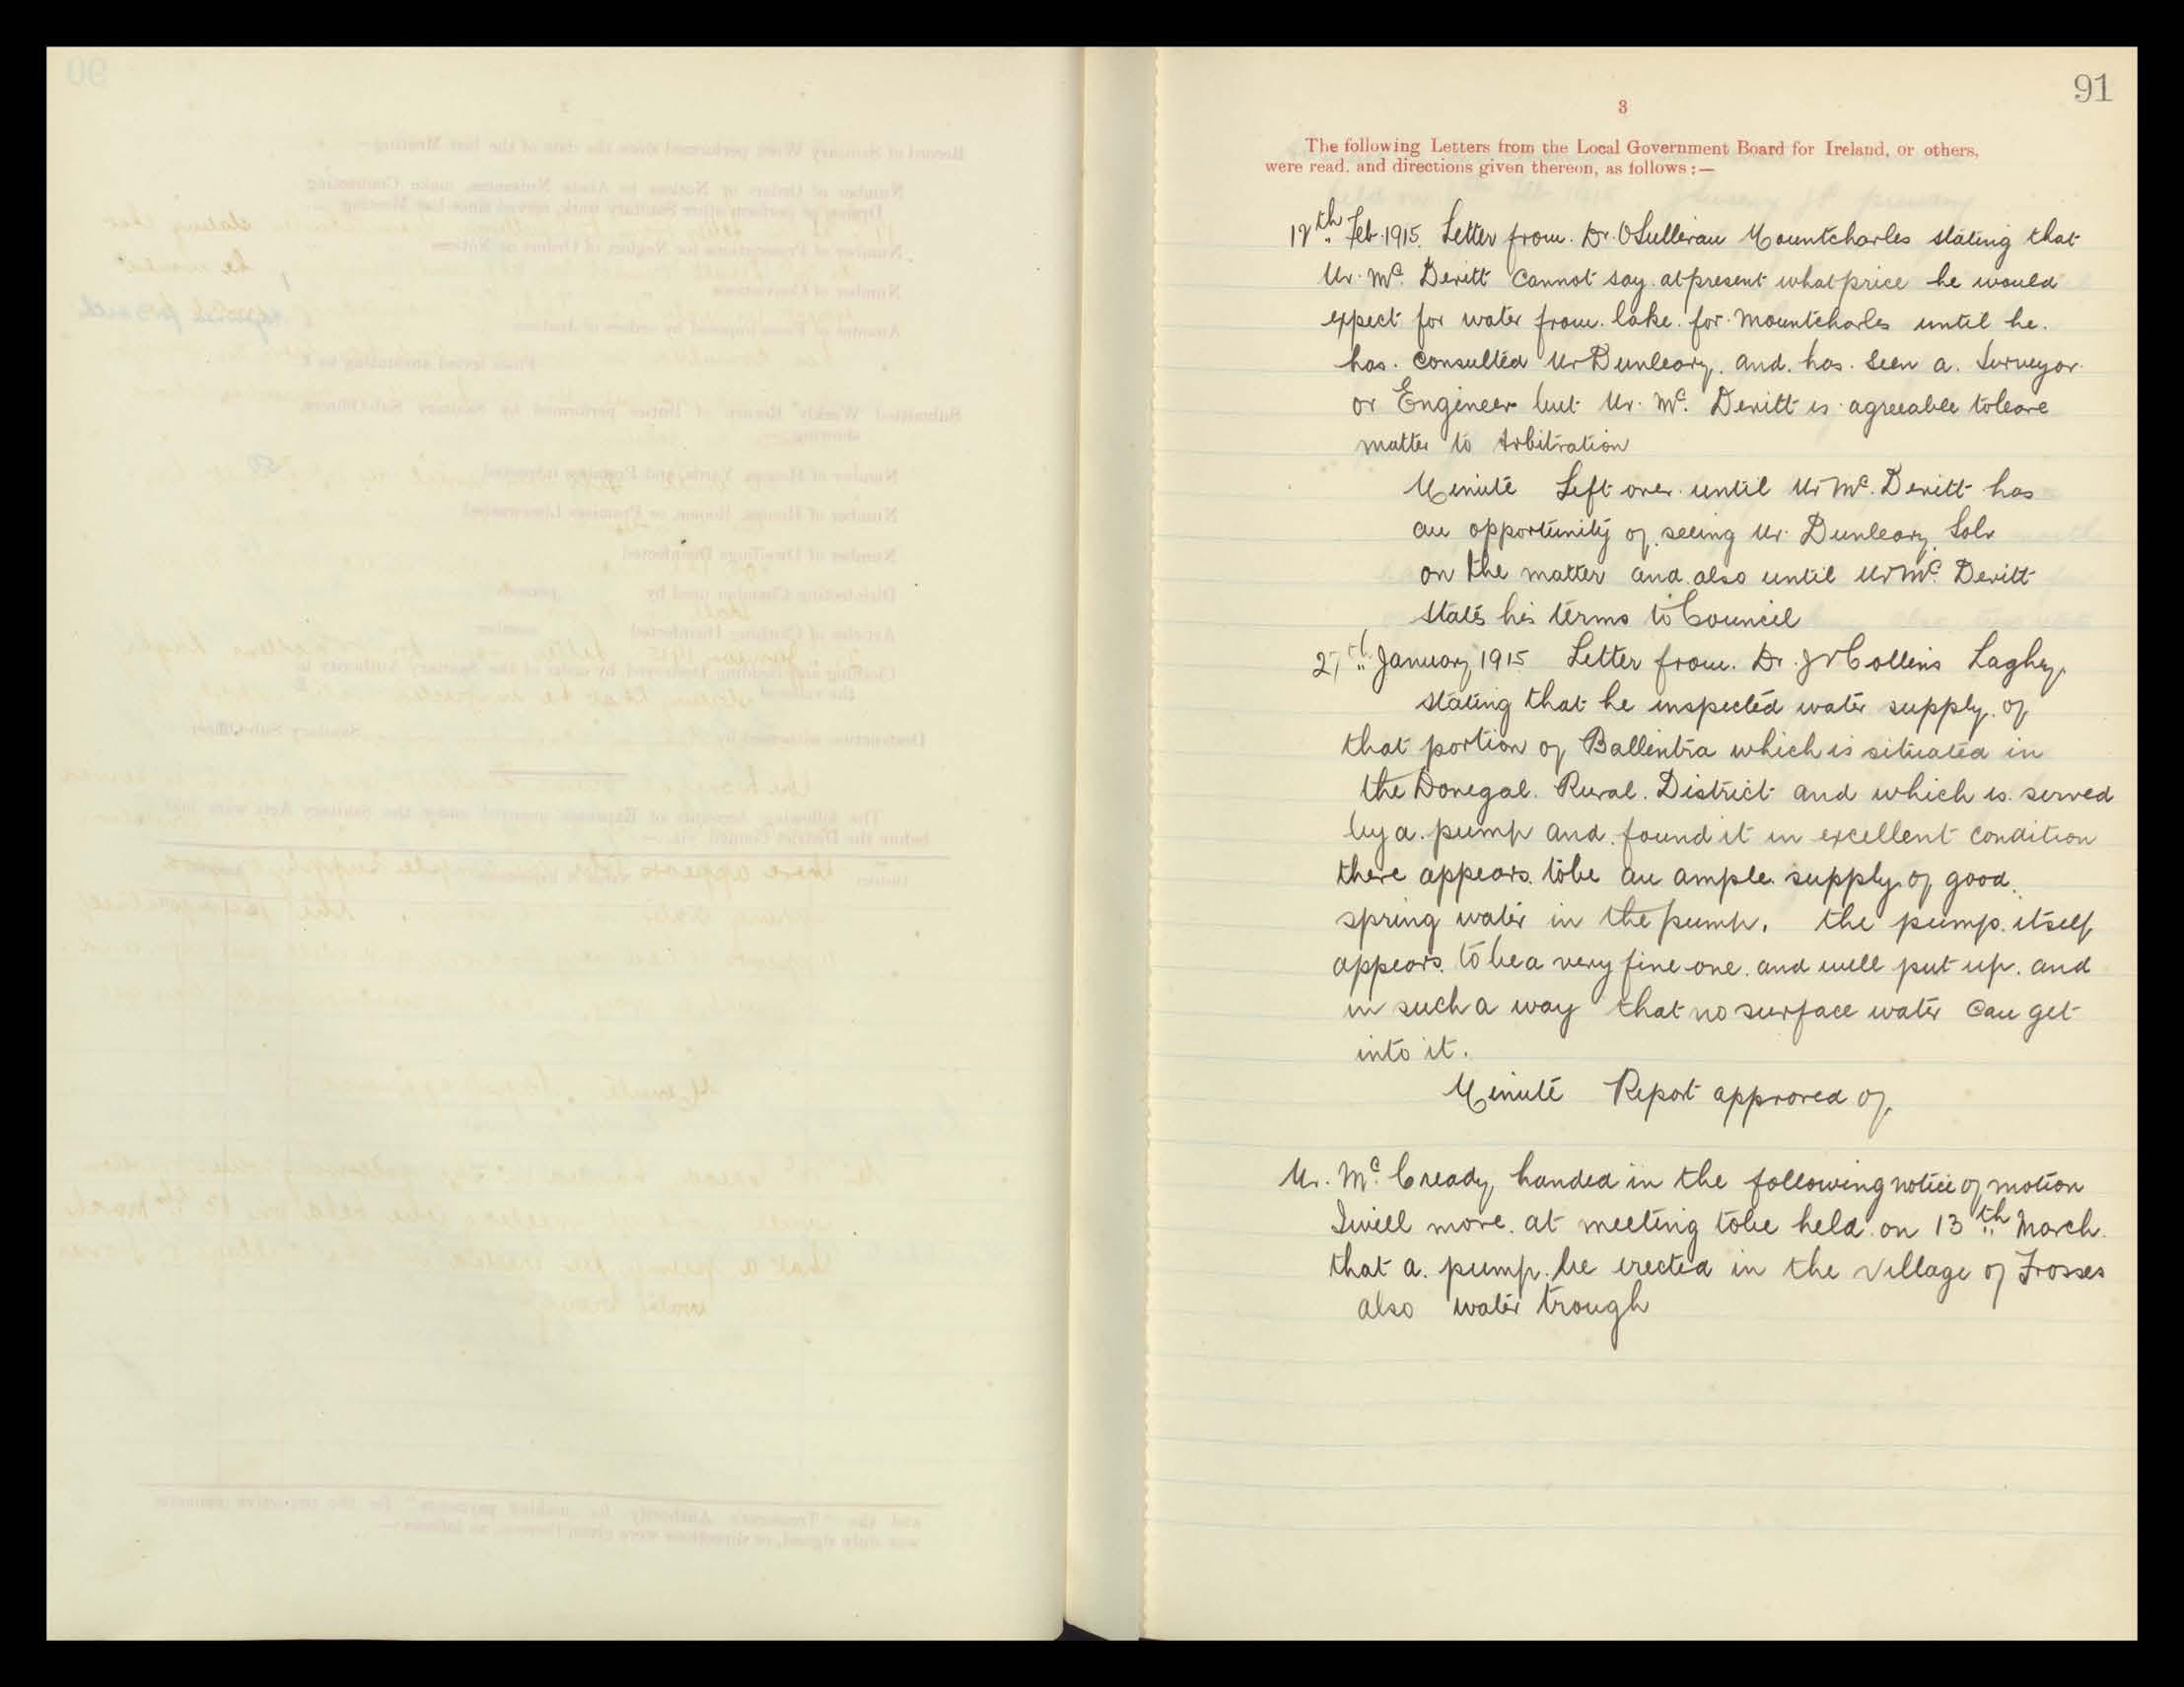 91
3
The following Letters from the Local Government Board for Ireland, or others,
were read, and directions given thereon, as follows:—
12th Feb. 1915. Letter from Dr. OSullivan Mountcharles stating that
Mr. McDevitt cannot say at present what price he would
expect for water from lake for Mountcharles until he
has consulted Mr Dunleavy and has seen a Surveyor
or Engineer but Mr. McDevitt is agreeable to leave
matter to Arbitration
Minute Left over until Mr McDevitt has
an opportunity of seeing Mr. Dunleavy Solr
on the matter and also until Mr McDevitt
states his terms to Council
January 1915 Letter from Dr. J Collins Laghey
stating that he inspected water supply of
that portion of Ballintra which is situated in
the Donegal Rural District and which is served
by a pump and found it in excellent condition
there appears to be an ample supply of good
spring water in the pump. the pump itself
appears to be a very fine one and well put up and
in such a way that no surface water can get
into it.
Minute Report approved of
Mr. McCready handed in the following notice of motion
I will move at meeting to be held on 13th March
that a pump be erected in the village of Frosses
also water trough